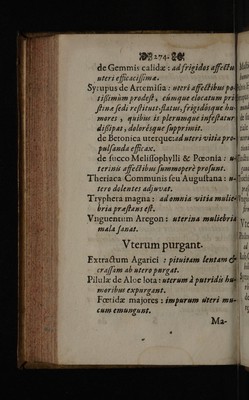 274.
de Gemmis calidæ: ad frigidos affectus
uteri efficacissima.
Syrupus de Artemisia: uteri affectibus po-
tissimùm prodest, eúmque elocatum pri-
stinæ sedi restituit: flatus, frigidósque hu-
mores, quibus is plerumque infestatur
dissipat, dolorésque supprimit.
de Betonica uterque: ad uteri vitia pro-
pulsanda efficax.
de succo Melissophylli & Pœonia: u-
terinis affectibus summoperè prosunt.
Theriaca Communis seu Augustana: u-
tero dolentes adjuvat.
Tryphera magna: ad omnia vitia mulie-
bria præstans est.
Vnguentum Aregon: uterina muliebria
mala sanat.
Vterum purgant.
Extractum Agarici: pituitam lentam &
crassam ab utero purgat.
Pilulæ de Aloe lota: uterum à putridis hu-
moribus expurgant.
Fœtidæ majores: impurum uteri mu-
cum emungunt.
Ma-